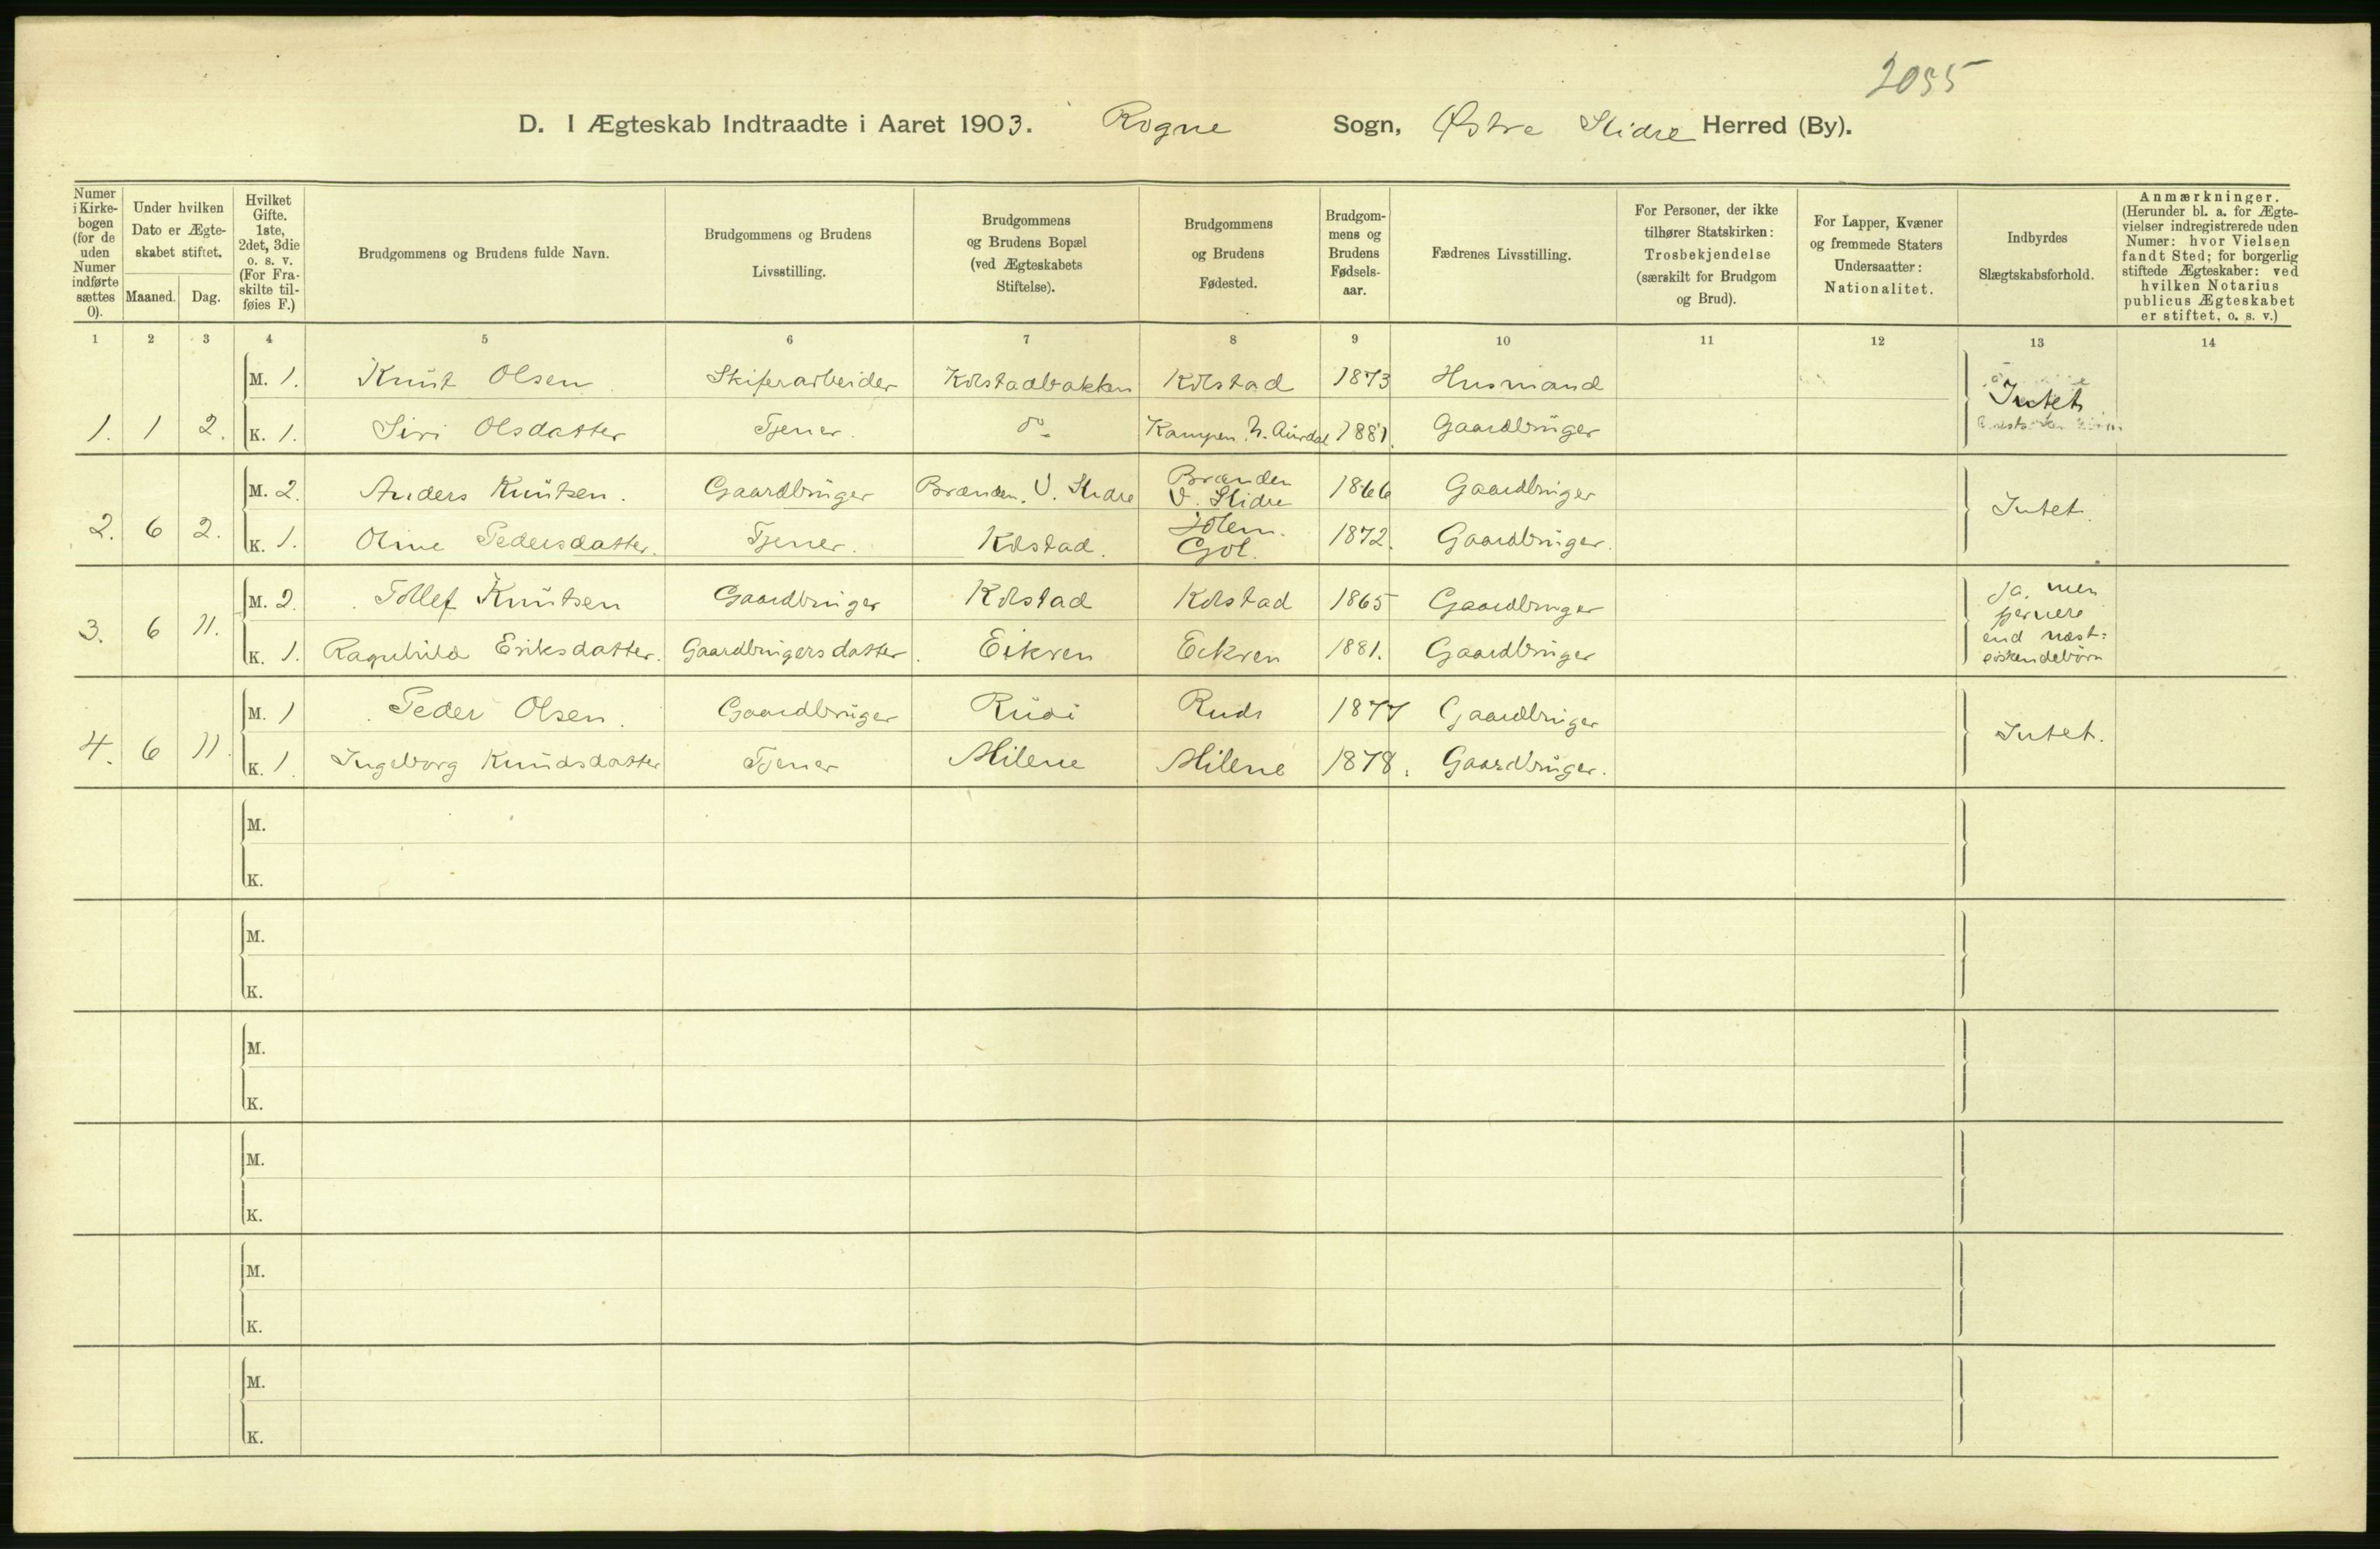 2055
D. I Ægteskab Indtraadte i Aaret 1903. Rogne Sogn, Østre Slidre Herred (By).
Numer i Kirkebogen (for de uden Numer indførte sættes 0).
Under hvilken Dato er Ægteskabet stiftet.
Maaned. Dag.
Hvilket Gifte. 1ste, 2det, 3die o. s. v. (For Fraskilte tilføies F.)
Brudgommens og Brudens fulde Navn.
Brudgommens og Brudens Livsstilling.
Brudgommens og Brudens Bopæl (ved Ægteskabets Stiftelse).
Brudgommens og Brudens Fødested.
Brudgommens og Brudens Fødselsaar.
Fædrenes Livsstilling.
For Personer, der ikke tilhører Statskirken: Trosbekjendelse (særskilt for Brudgom og Brud).
For Lapper, Kvæner og fremmede Staters Undersaatter: Nationalitet.
Indbyrdes Slægtskabsforhold.
Anmærkninger. (Herunder bl. a. for Ægtevielser indregistrerede uden Numer: hvor Vielsen fandt Sted; for borgerlig stiftede Ægteskaber: ved hvilken Notarius publicus Ægteskabet er stiftet, o. s. v.)
1 2 3 4 5 6 7 8 9 10 11 12 13 14
M. 1. Knut Olsen Skiferarbeider Kolstadbakken Kolstad 1873 Husmand Intet
1. 1 2. K. 1. Siri Olsdatter Tjener. do Kampen N. Aurdal 1881. Gaardbruger
M. 2. Anders Knutsen. Gaardbruger Brænden. V. Slidre Brænden V. Slidre 1866 Gaardbruger Intet.
2. 6 2. K. 1. Oline Pedersdatter. Tjener. Kolstad. Golem. Gol. 1872. Gaardbruger.
M. 2. Tollef Knutsen Gaardbruger Kolstad Kolstad 1865 Gaardbruger Ja, men fjernere
3. 6 11. K. 1. Ragnhild Eriksdatter. Gaardbrugersdatter. Eikren Eikren 1881. Gaardbruger end næstsøskendebørn
M. 1 Peder Olsen. Gaardbruger Rudi Rudi 1877 Gaardbruger Intet.
4. 6 11. K. 1. Ingeborg Knudsdatter Tjener Milene Milene 1878. Gaardbruger.
M.
K.
M.
K.
M.
K.
M.
K.
M.
K.
M.
K.